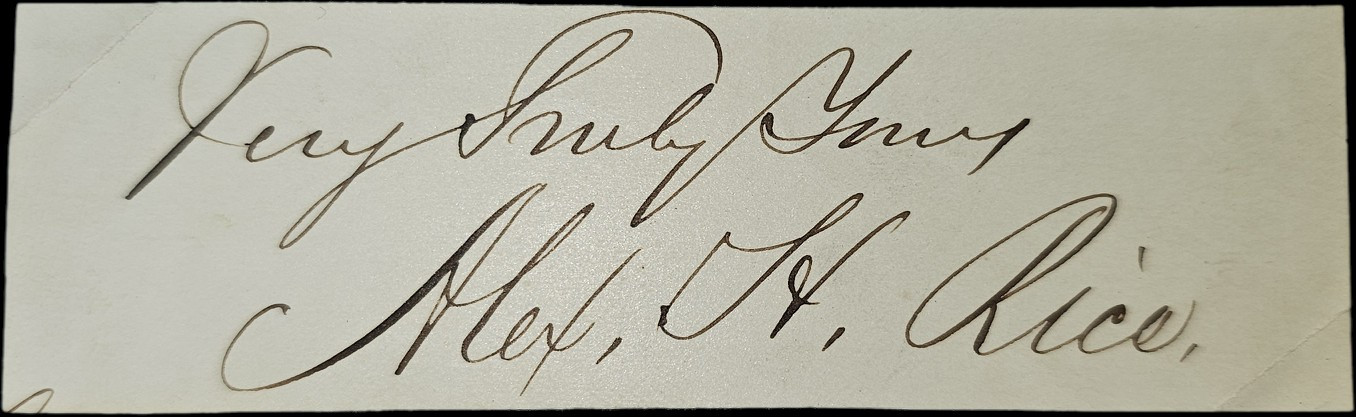 Very Truly Yours
Alex. H. Rice.